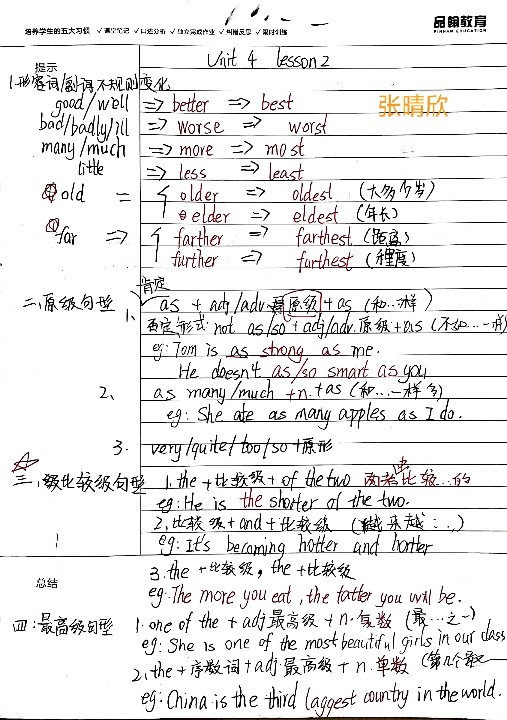 培养学生的五大习惯 ✓课堂笔记 ✓口述分析 ✓独立完成作业 ✓纠错反思 ✓限时训练
品翰教育
PINHAN EDUCATION
提示
Unit 4 lesson 2
1.形容词/副词不规则变化
张晴欣
good/well => better => best
bad/badly/ill => worse => worst
many/much => more => most
little => less => least
① old = { older => oldest (大多多少岁)
elder => eldest (年长)
② far => { farther => farthest (距离)
further => furthest (程度)
肯定
二、原级句型 1、 as + adj/adv 原级 + as (和…一样)
否定形式: not as/so + adj/adv.原级 + as (不如…一样)
eg: Tom is as strong as me.
He doesn't as/so smart as you
2、 as many/much + n. + as (和…一样多)
eg: She ate as many apples as I do.
3. very/quite/too/so + 原形
三、级比较级句型 1.the + 比较级 + of the two 两者中比较…的
eg: He is the shorter of the two.
2,比较级 + and + 比较级 (越来越…)
eg: It's becoming hotter and hotter
总结
3.the + 比较级, the + 比较级
eg: The more you eat, the fatter you will be.
四:最高级句型 1.one of the + adj最高级 + n.复数 (最…之一)
eg: She is one of the most beautiful girls in our class
2,the + 序数词 + adj最高级 + n.单数 (第几个最
eg: China is the third laggest country in the world.